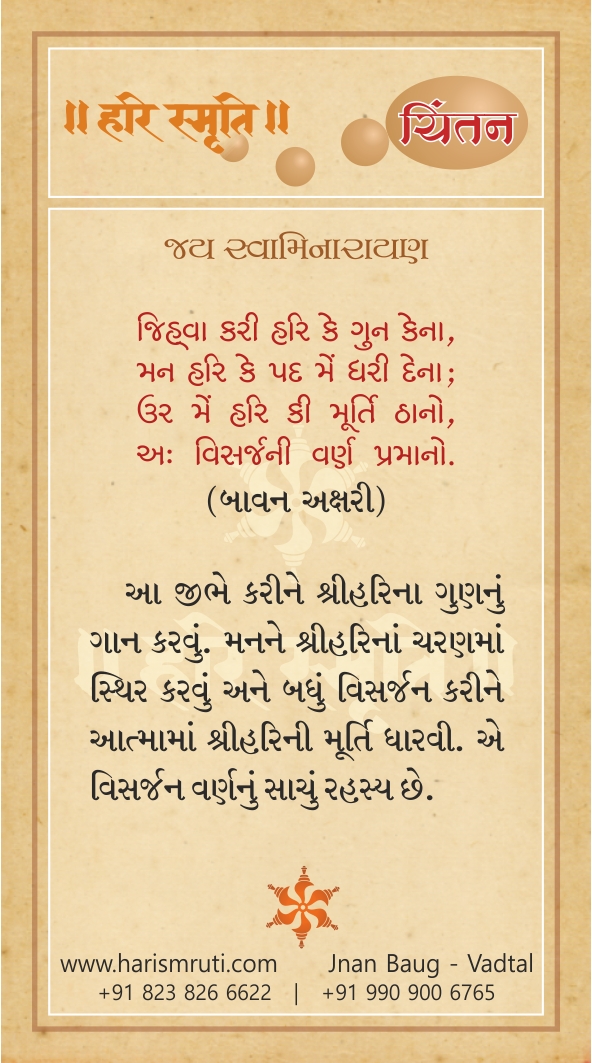 ॥ हरि स्मृति ॥
ચિંતન
જય સ્વામિનારાયણ
જિહ્વા કરી હરિ કે ગુન કેના,
મન હરિ કે પદ મેં ધરી દેના;
ઉર મેં હરિ કી મૂર્તિ ઠાનો,
અઃ વિસર્જની વર્ણ પ્રમાનો.
(બાવન અક્ષરી)
આ જીભે કરીને શ્રીહરિના ગુણનું
ગાન કરવું. મનને શ્રીહરિનાં ચરણમાં
સ્થિર કરવું અને બધું વિસર્જન કરીને
આત્મામાં શ્રીહરિની મૂર્તિ ધારવી. એ
વિસર્જન વર્ણનું સાચું રહસ્ય છે.
॥ हरि स्मृति ॥
www.harismruti.com Jnan Baug - Vadtal
+91 823 826 6622 | +91 990 900 6765